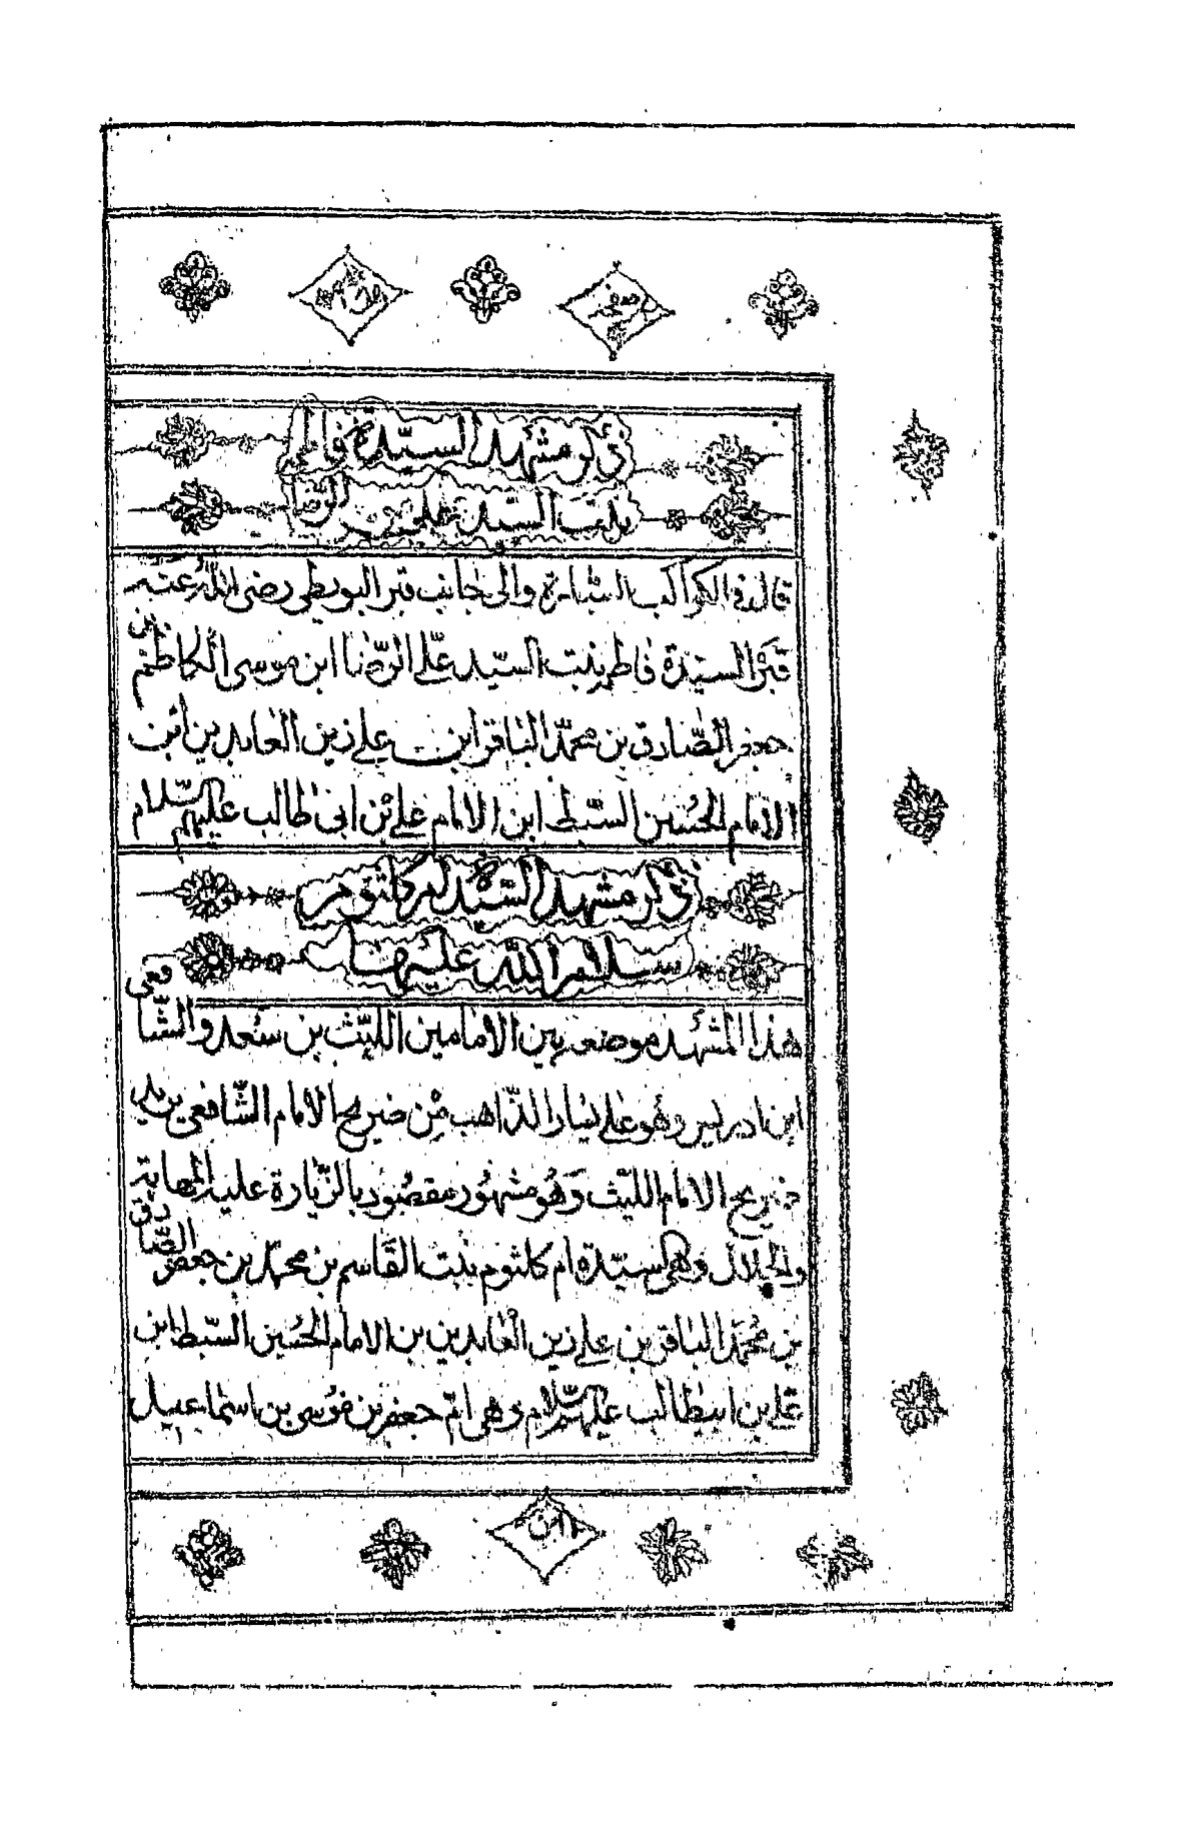 ذكر مشهد السيدة فاطمة
بنت السيد علي الرضا
قال في الكواكب السيارة والى جانب قبر البويطى رضى الله عنه
قبر السيدة فاطمة بنت السيد على الرضا ابن موسى الكاظم بن
جعفر الصادق بن محمد الباقر ابن على زين العابدين ابن
الامام الحسين السبط ابن الامام على بن ابى طالب عليهم السلام
ذكر مشهد السيدة ام كلثوم
سلام الله عليها
هذا المشهد موضعه بين الامامين الليث بن سعد والشافعى
ابن ادريس وهو على يسار الذاهب من ضريح الامام الشافعى يريد
ضريح الامام الليث وهو مشهور مقصود بالزيارة عليه المهابة
والجلال وهى السيدة ام كلثوم بنت القاسم بن محمد بن جعفر الصادق
بن محمد الباقر بن على زين العابدين بن الامام الحسين السبط ابن
على بن ابيطالب عليهم السلام وهى ام جعفر بن موسى بن اسماعيل
ابن